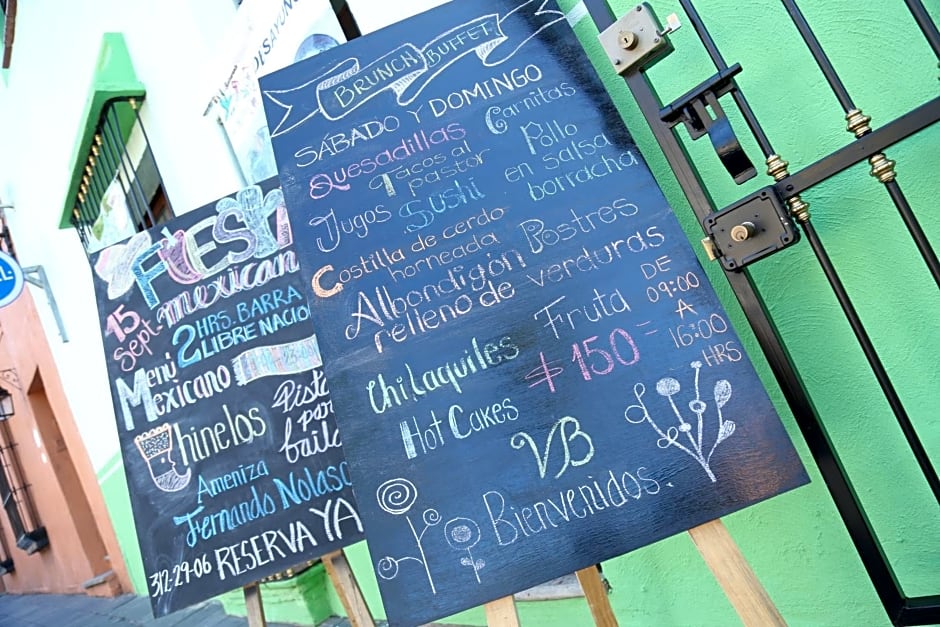 BRUNCH BUFFET
SÁBADO Y DOMINGO
Quesadillas
Carnitas
Tacos al
pastor
Pollo
en salsa
borracha
Jugos
Sushi
Costilla de cerdo
horneada
Postres
Albondigón
relleno de verduras
Fruta
DE
09:00
A
16:00
HRS
Chilaquiles
$150=
Hot Cakes
VB
Bienvenidos.
FIEST
mexican
15
Sept.
2 HRS. BARRA
LIBRE NACIO
Menú
Mexicano
Chinelos
Pista
par
baila
Ameniza
Fernando Nolasc
312-29-06 RESERVA YA